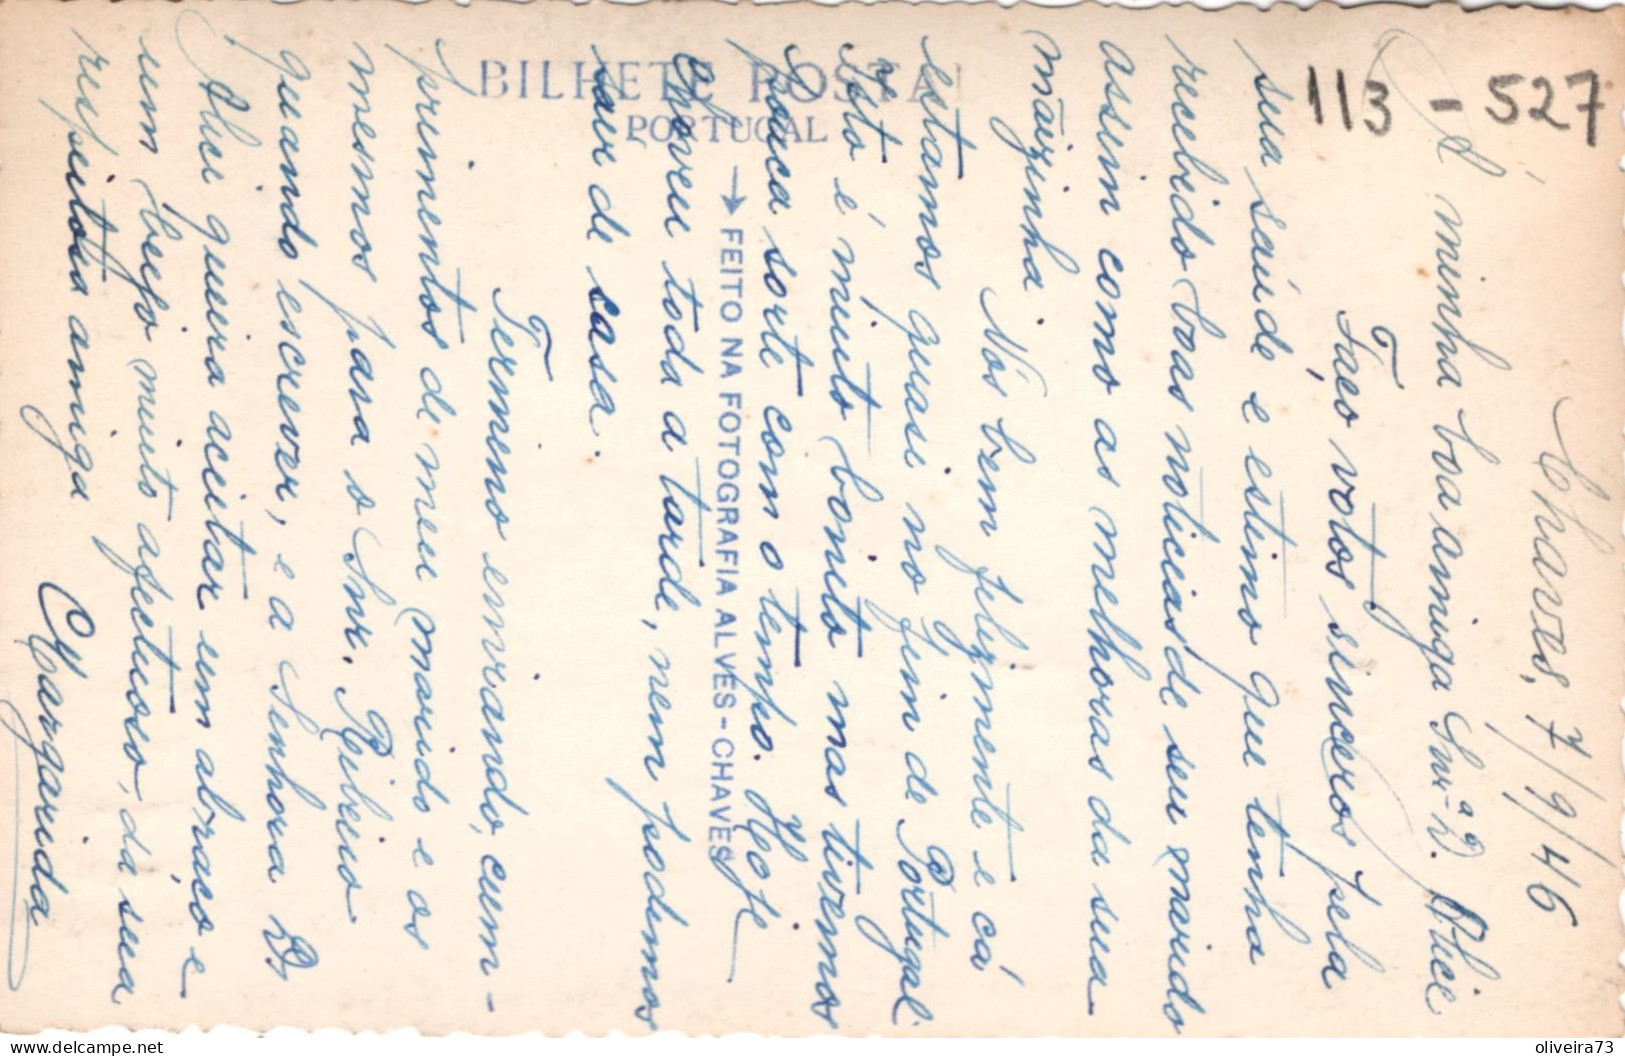 BILHETE POSTAL
PORTUGAL
→ FEITO NA FOTOGRAFIA ALVES-CHAVES
113 - 527
Chaves, 7/9/46
Á minha boa amiga Snr.ª D. Alice
Faço votos sinceros pela
sua saúde e estimo que tenha
recebido boas noticias de seu marido
assim como as melhoras da sua
mãizinha
Nós bem felizmente e cá
estamos quasi no fim de Portugal.
Isto é miuto bonito mas tivemos
pouca sorte com o tempo. Hoje
choveu toda a tarde, nem podemos
sair de casa.
Termino enviando, cum-
primentos de meu marido e os
mesmos para o Snr. Ribeiro
quando escrever, e a Senhora D.
Alice queira aceitar um abraço e
um beijo miuto afetuoso, da sua
respeitosa amiga
Margarida
oliveira73
delcampe.net